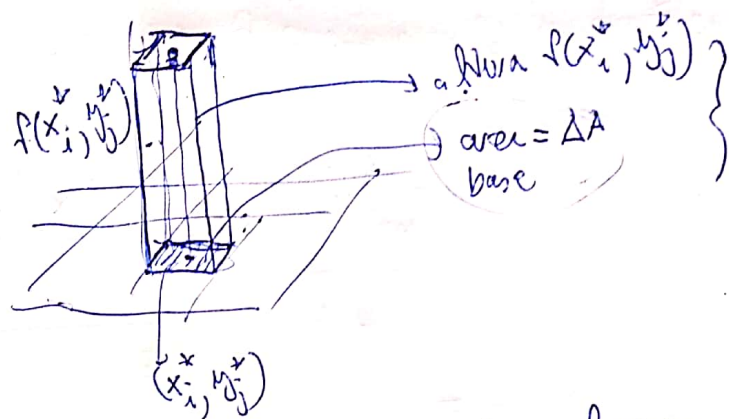 f(x*i, y*j)
altura f(x*i, y*j)
area = ΔA
base
(x*i, y*j)